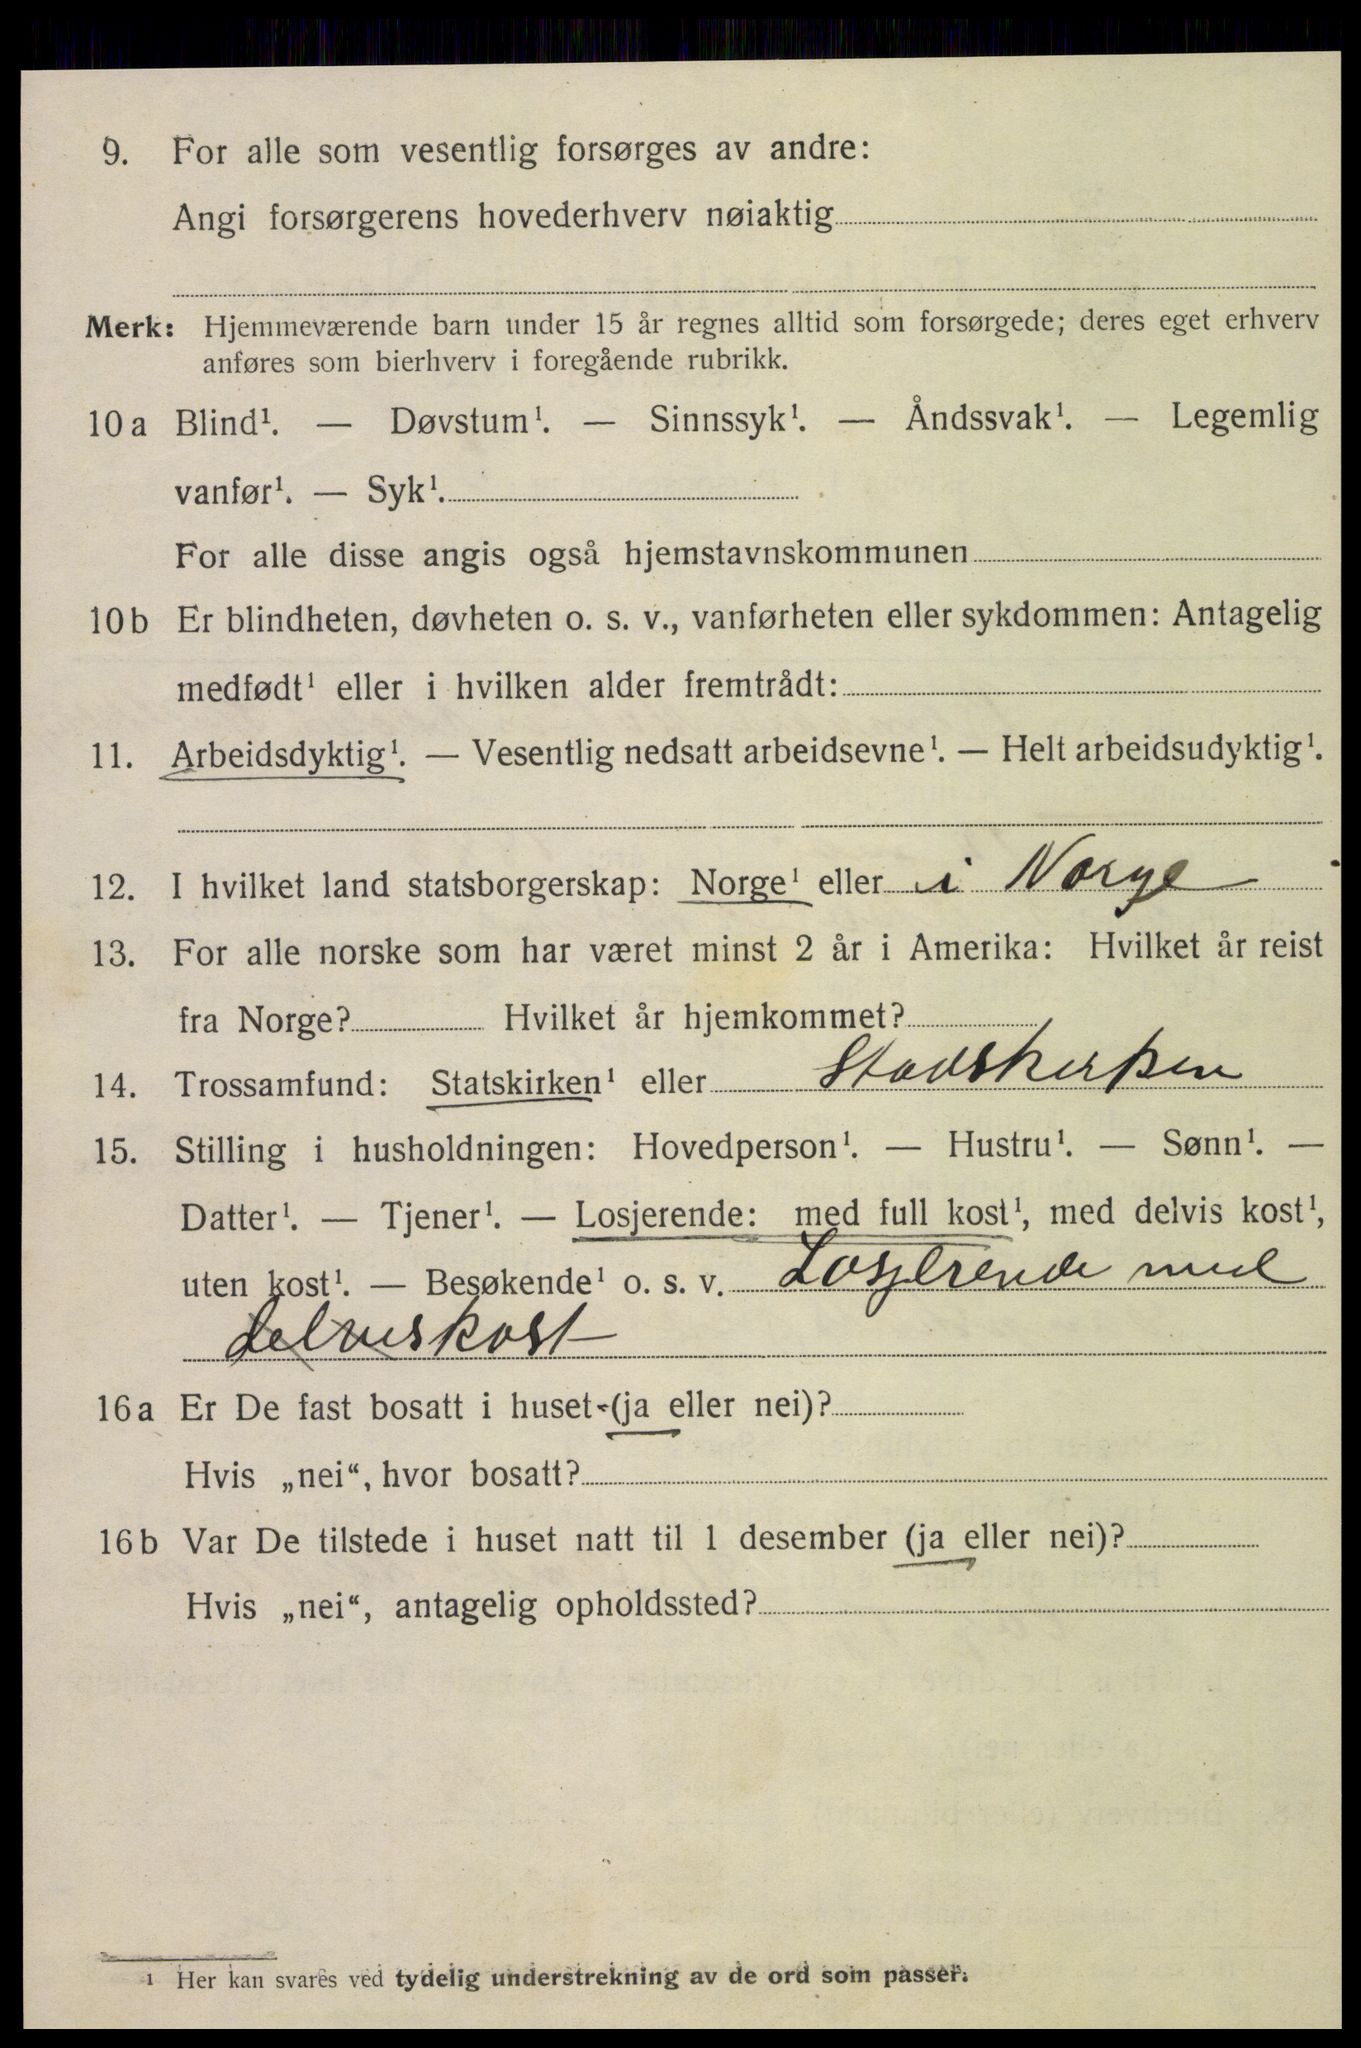 9. For alle som vesentlig forsørges av andre:
Angi forsørgerens hovederhverv nøiaktig
Merk: Hjemmeværende barn under 15 år regnes alltid som forsørgede; deres eget erhverv
anføres som bierhverv i foregående rubrikk.
10 a Blind¹. — Døvstum¹. — Sinnssyk¹. — Åndssvak¹. — Legemlig
vanfør¹. — Syk¹.
For alle disse angis også hjemstavnskommunen
10 b Er blindheten, døvheten o. s. v., vanførheten eller sykdommen: Antagelig
medfødt¹ eller i hvilken alder fremtrådt:
11. Arbeidsdyktig¹. — Vesentlig nedsatt arbeidsevne¹. — Helt arbeidsudyktig¹.
12. I hvilket land statsborgerskap: Norge¹ eller i Norge
13. For alle norske som har været minst 2 år i Amerika: Hvilket år reist
fra Norge? Hvilket år hjemkommet?
14. Trossamfund: Statskirken¹ eller Stadskirken
15. Stilling i husholdningen: Hovedperson¹. — Hustru¹. — Sønn¹. —
Datter¹. — Tjener¹. — Losjerende: med full kost¹, med delvis kost¹,
uten kost¹. — Besøkende¹ o. s. v. Losjerende med
delviskost
16 a Er De fast bosatt i huset (ja eller nei)?
Hvis „nei“, hvor bosatt?
16 b Var De tilstede i huset natt til 1 desember (ja eller nei)?
Hvis „nei“, antagelig opholdssted?
¹ Her kan svares ved tydelig understrekning av de ord som passer.